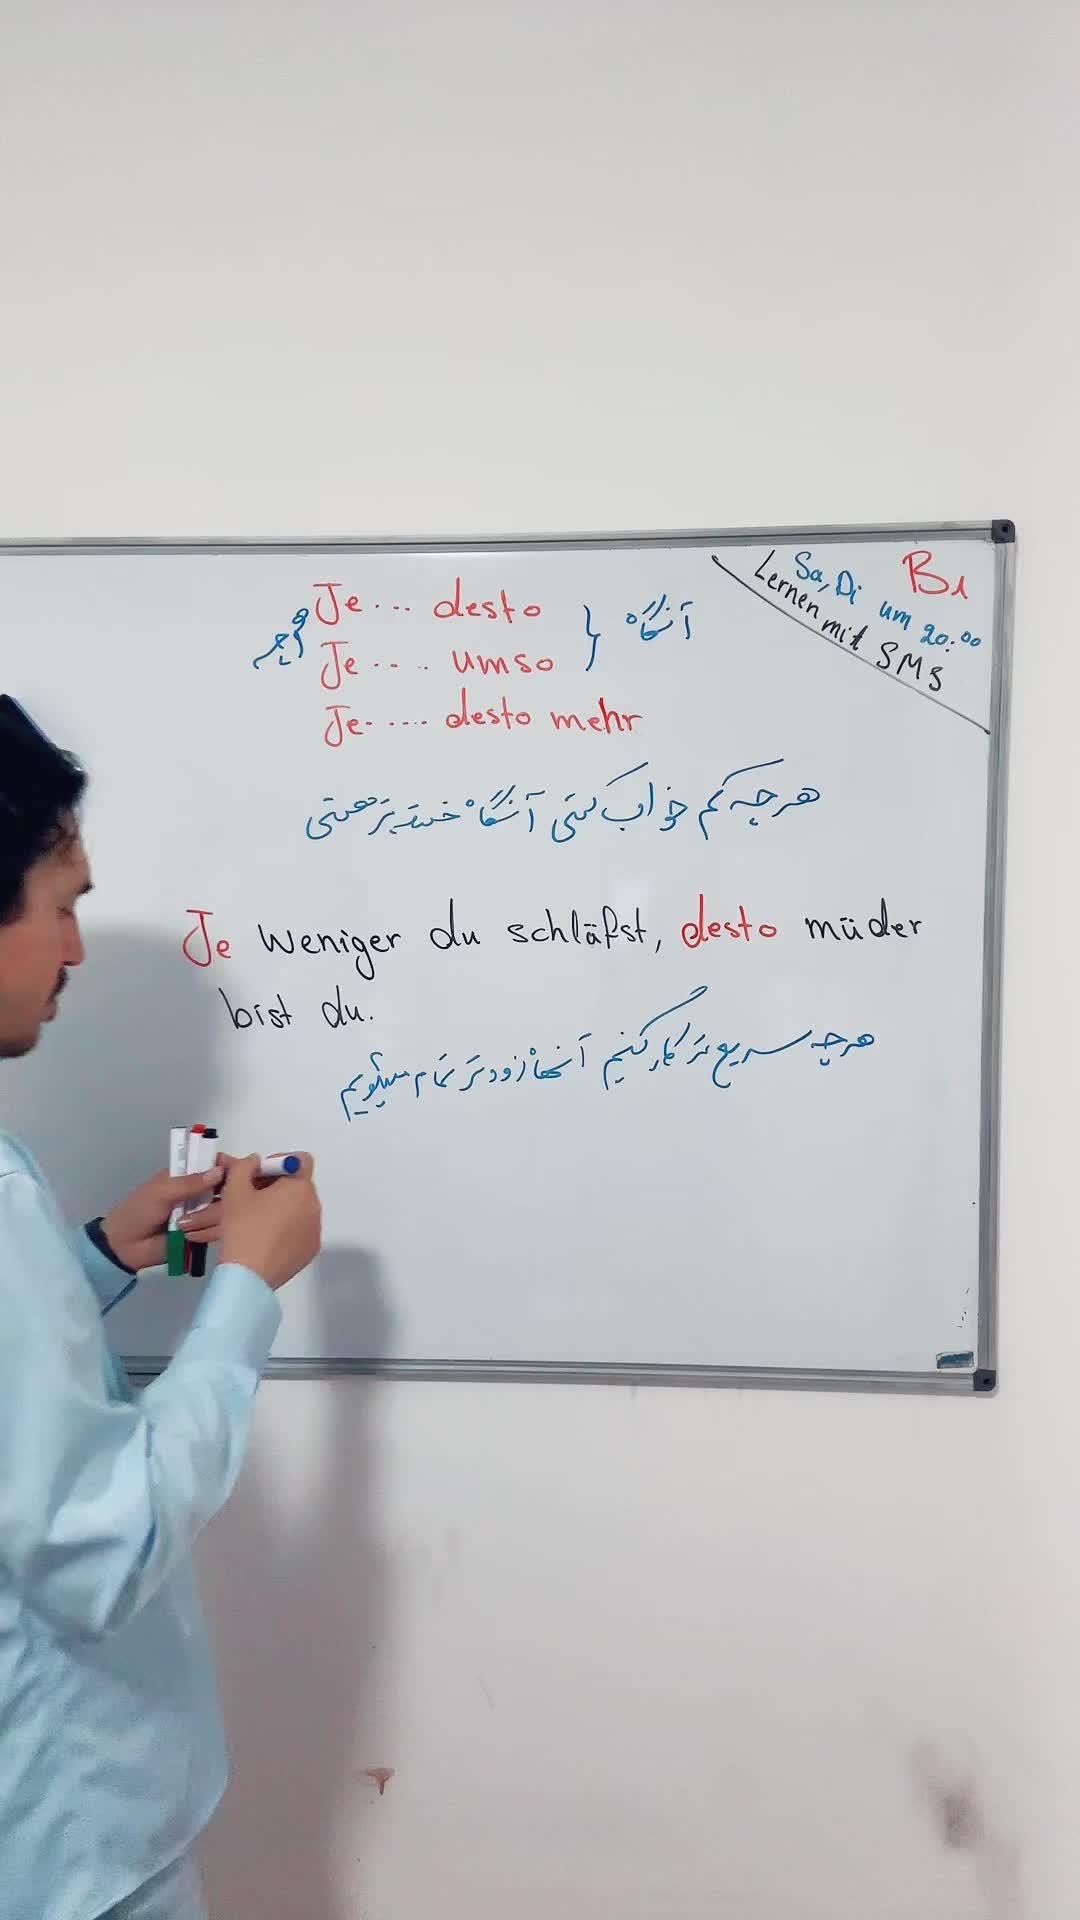 Je ... desto
هرچه
آنگاه
Je .... umso
Je ..... desto mehr
B1
Sa, Di um 20:00
Lernen mit SMS
هرچه کم خواب کنی آنگاه خسته تر هستی
Je weniger du schläfst, desto müder
bist du.
هرچه سریع تر کار کنیم آنگاه زودتر تمام میشویم